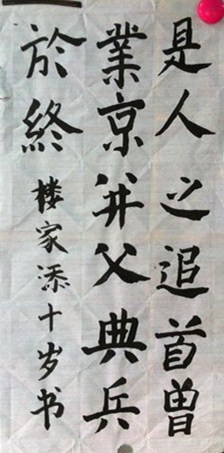 是人之追首曽
業京并父典兵
於終
楼家添十岁书